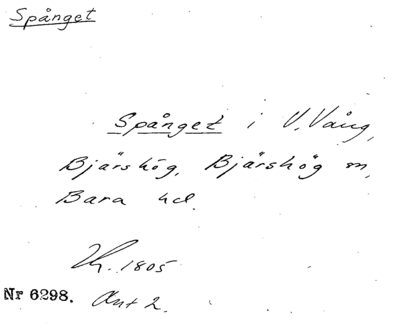 Spånget
Spånget i V. Vång,
Bjärshög, Bjärshög m,
Bara hd.
1805
Nr 6298. Akt 2.